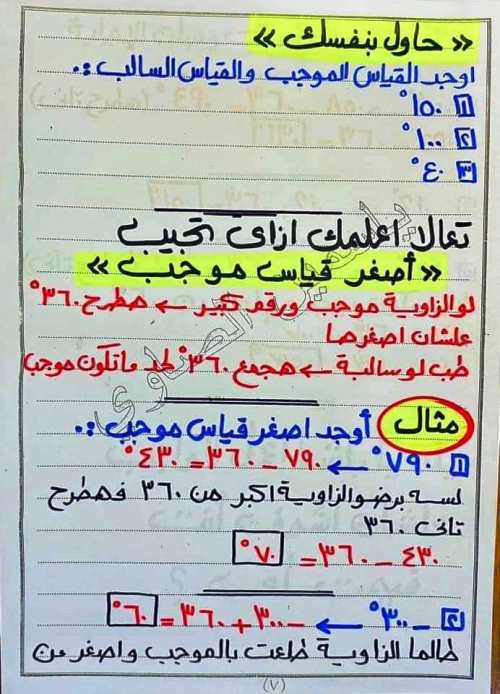 « حاول بنفسك »
اوجد القياس الموجب والقياس السالب :.
١ ١٥٠°
٢ ١٠٠°
٣ ٤٠°
تعالا اعلمك ازاى تجيب
« أصغر قياس موجب »
لو الزاوية موجب ورقم كبير ← هطرح ٣٦٠°
علشان اصغرها
طب لو سالبة ← هجمع ٣٦٠° لحد ما تكون موجب
مثال أوجد اصغر قياس موجب :.
١ ٧٩٠° ← ٧٩٠ - ٣٦٠ = ٤٣٠°
لسه برضو الزاوية اكبر من ٣٦٠ فهطرح
تانى ٣٦٠
٤٣٠ - ٣٦٠ = ٧٠°
٢ -٣٠٠° ← -٣٠٠ + ٣٦٠ = ٦٠°
طالما الزاوية طلعت بالموجب واصغر من
(٧)
ياسمين الصاوى